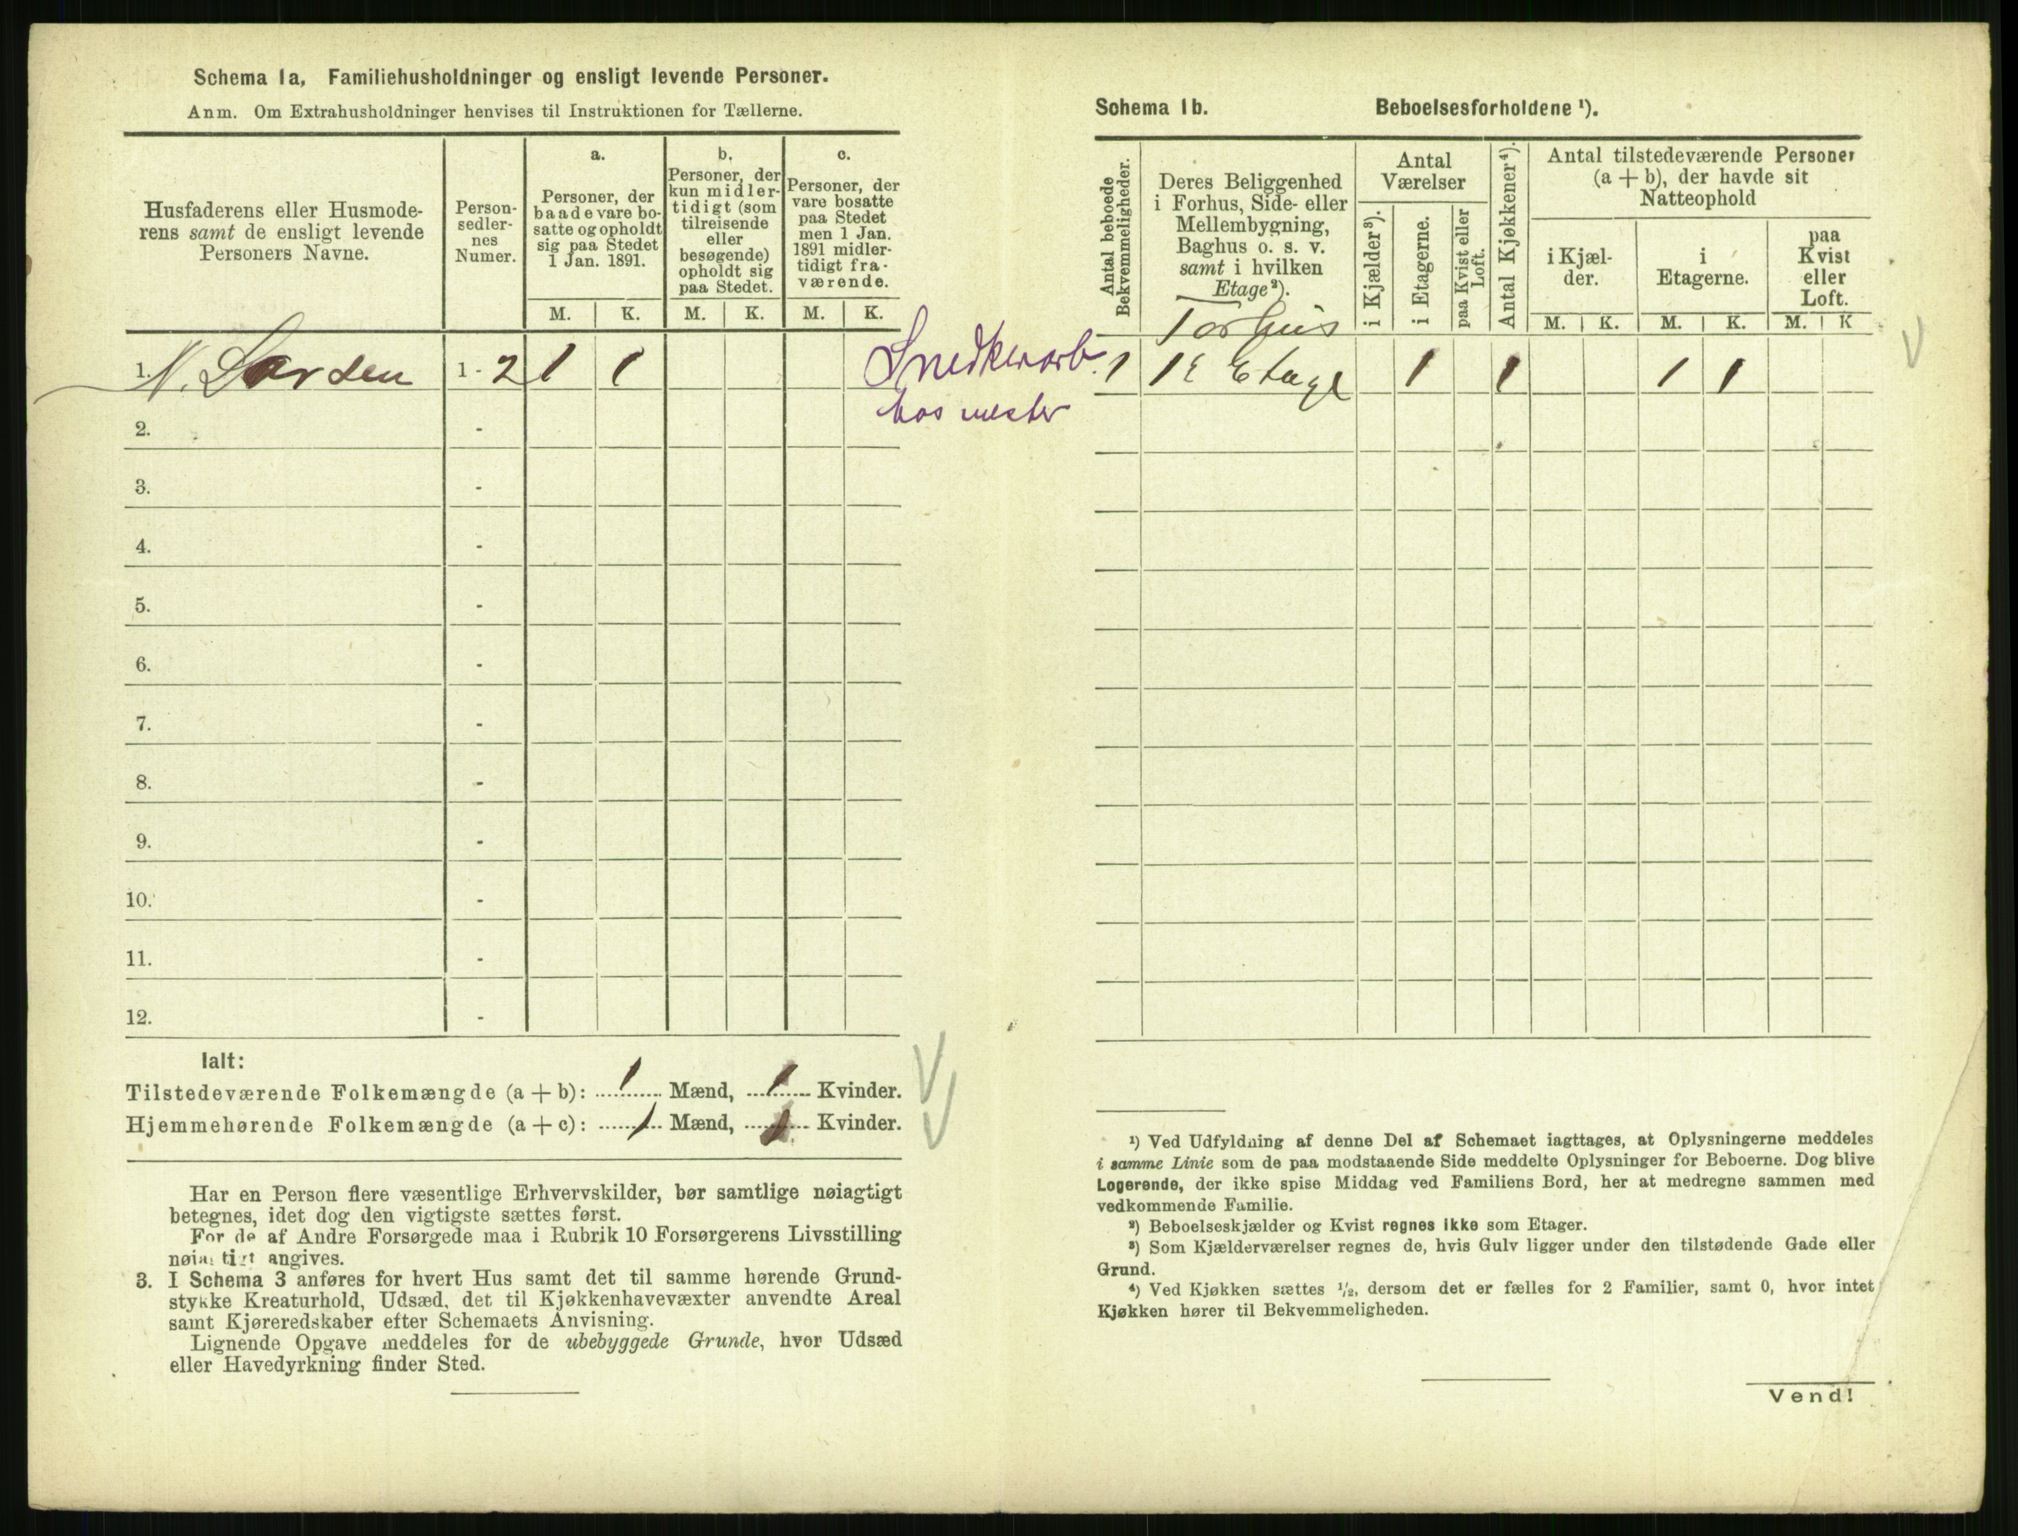 Schema 1a, Familiehusholdninger og ensligt levende Personer.
Anm. Om Extrahusholdninger henvises til Instruktionen for Tællerne.
Husfaderens eller Husmode-
rens samt de ensligt levende
Personers Navne.
Person-
sedler-
nes
Numer.
a.
Personer, der
baade vare bo-
satte og opholdt
sig paa Stedet
1 Jan. 1891.
b.
Personer, der
kun midler-
tidigt (som
tilreisende
eller
besøgende)
opholdt sig
paa Stedet.
c.
Personer, der
vare bosatte
paa Stedet
men 1 Jan.
1891 midler-
tidigt fra-
værende.
M. K. M. K. M. K.
1. N. Larsen 1 - 2 1 1
Snedkerarb.
hos mester
2. -
3. -
4. -
5. -
6. -
7. -
8. -
9. -
10. -
11. -
12. -
Ialt:
Tilstedeværende Folkemængde (a + b): 1 Mænd, 1 Kvinder.
Hjemmehørende Folkemængde (a + c): 1 Mænd, 1 Kvinder.
Har en Person flere væsentlige Erhvervskilder, bør samtlige nøiagtigt
betegnes, idet dog den vigtigste sættes først.
For de af Andre Forsørgede maa i Rubrik 10 Forsørgerens Livsstilling
nøiagtigt angives.
3. I Schema 3 anføres for hvert Hus samt det til samme hørende Grund-
stykke Kreaturhold, Udsæd, det til Kjøkkenhavevæxter anvendte Areal
samt Kjøreredskaber efter Schemaets Anvisning.
Lignende Opgave meddeles for de ubebyggede Grunde, hvor Udsæd
eller Havedyrkning finder Sted.
Schema 1b. Beboelsesforholdene ¹).
Antal beboede
Bekvemmeligheder.
Deres Beliggenhed
i Forhus, Side- eller
Mellembygning,
Baghus o. s. v.
samt i hvilken
Etage²).
Antal
Værelser
i Kjælder³).
i Etagerne.
paa Kvist eller
Loft.
Antal Kjøkkener⁴).
Antal tilstedeværende Personer
(a + b), der havde sit
Natteophold
i Kjæl-
der.
i
Etagerne.
paa
Kvist
eller
Loft.
M. K. M. K. M. K
Forhus
1 1E Etage 1 1 1 1
¹) Ved Udfyldning af denne Del af Schemaet iagttages, at Oplysningerne meddeles
i samme Linie som de paa modstaaende Side meddelte Oplysninger for Beboerne. Dog blive
Logerende, der ikke spise Middag ved Familiens Bord, her at medregne sammen med
vedkommende Familie.
²) Beboelseskjælder og Kvist regnes ikke som Etager.
³) Som Kjælderværelser regnes de, hvis Gulv ligger under den tilstødende Gade eller
Grund.
⁴) Ved Kjøkken sættes ½, dersom det er fælles for 2 Familier, samt 0, hvor intet
Kjøkken hører til Bekvemmeligheden.
Vend!